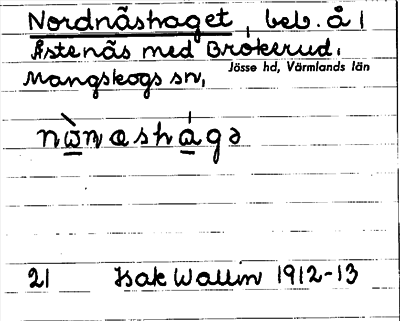 Nordnäshaget, beb. å 1
Åstenäs med Brokerud.
Mangskogs sn,
Jösse hd, Värmlands län
21 Isak Wallin 1912-13